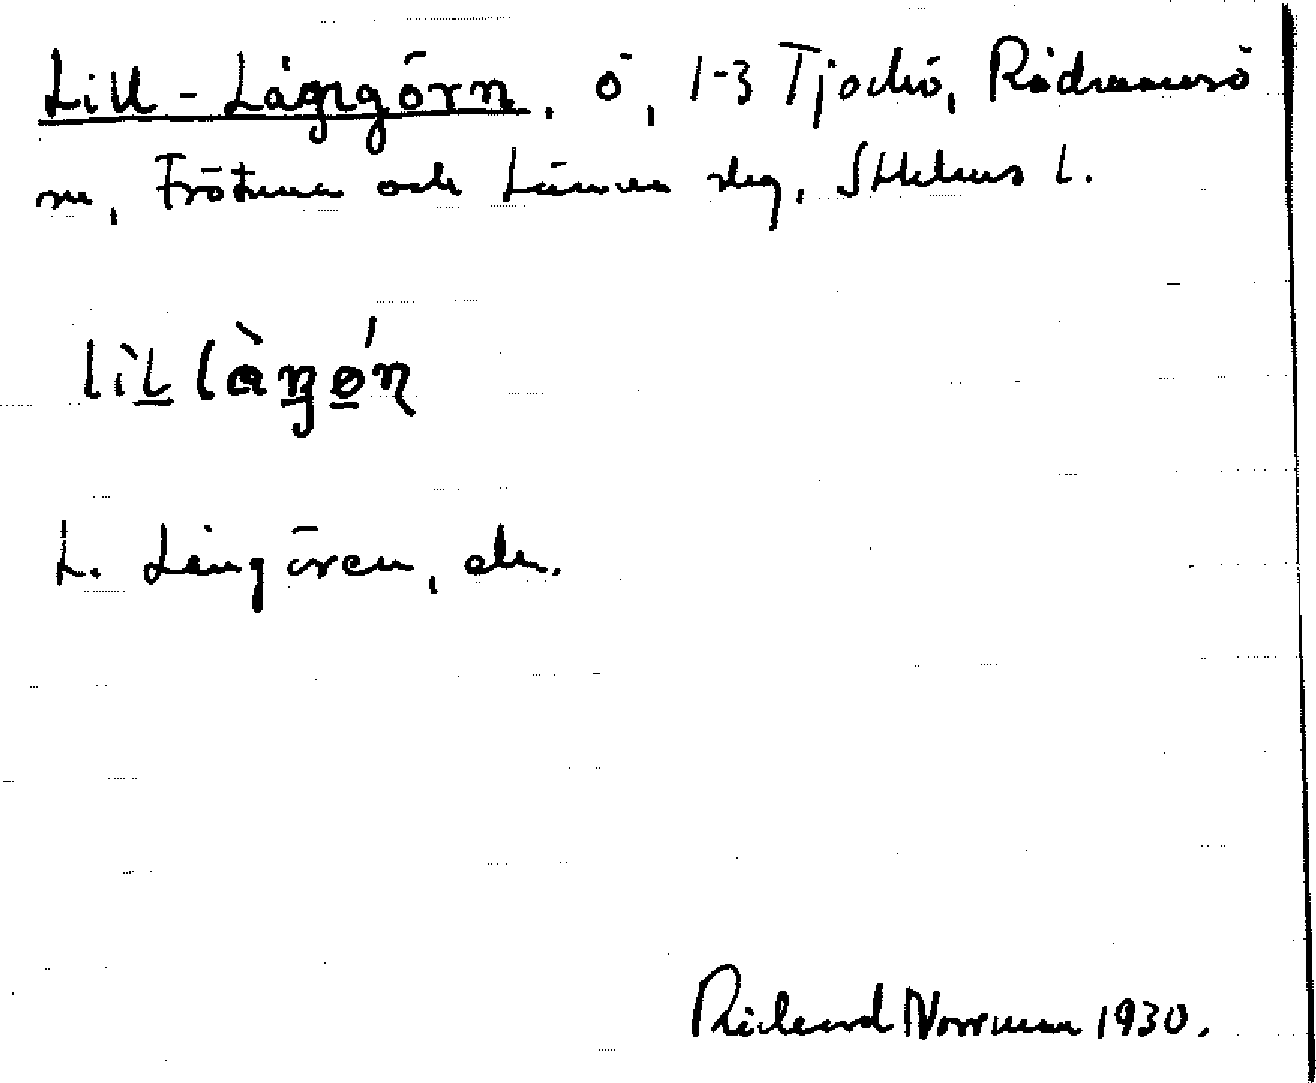 Lill-Långörn, ö, 1-3 Tjockö, Rådmansö
sn, Frötuna och Länna slg, Sthlms l.
lìllàŋǿn
L. Långören, ek.
Rickard Norrman 1930.